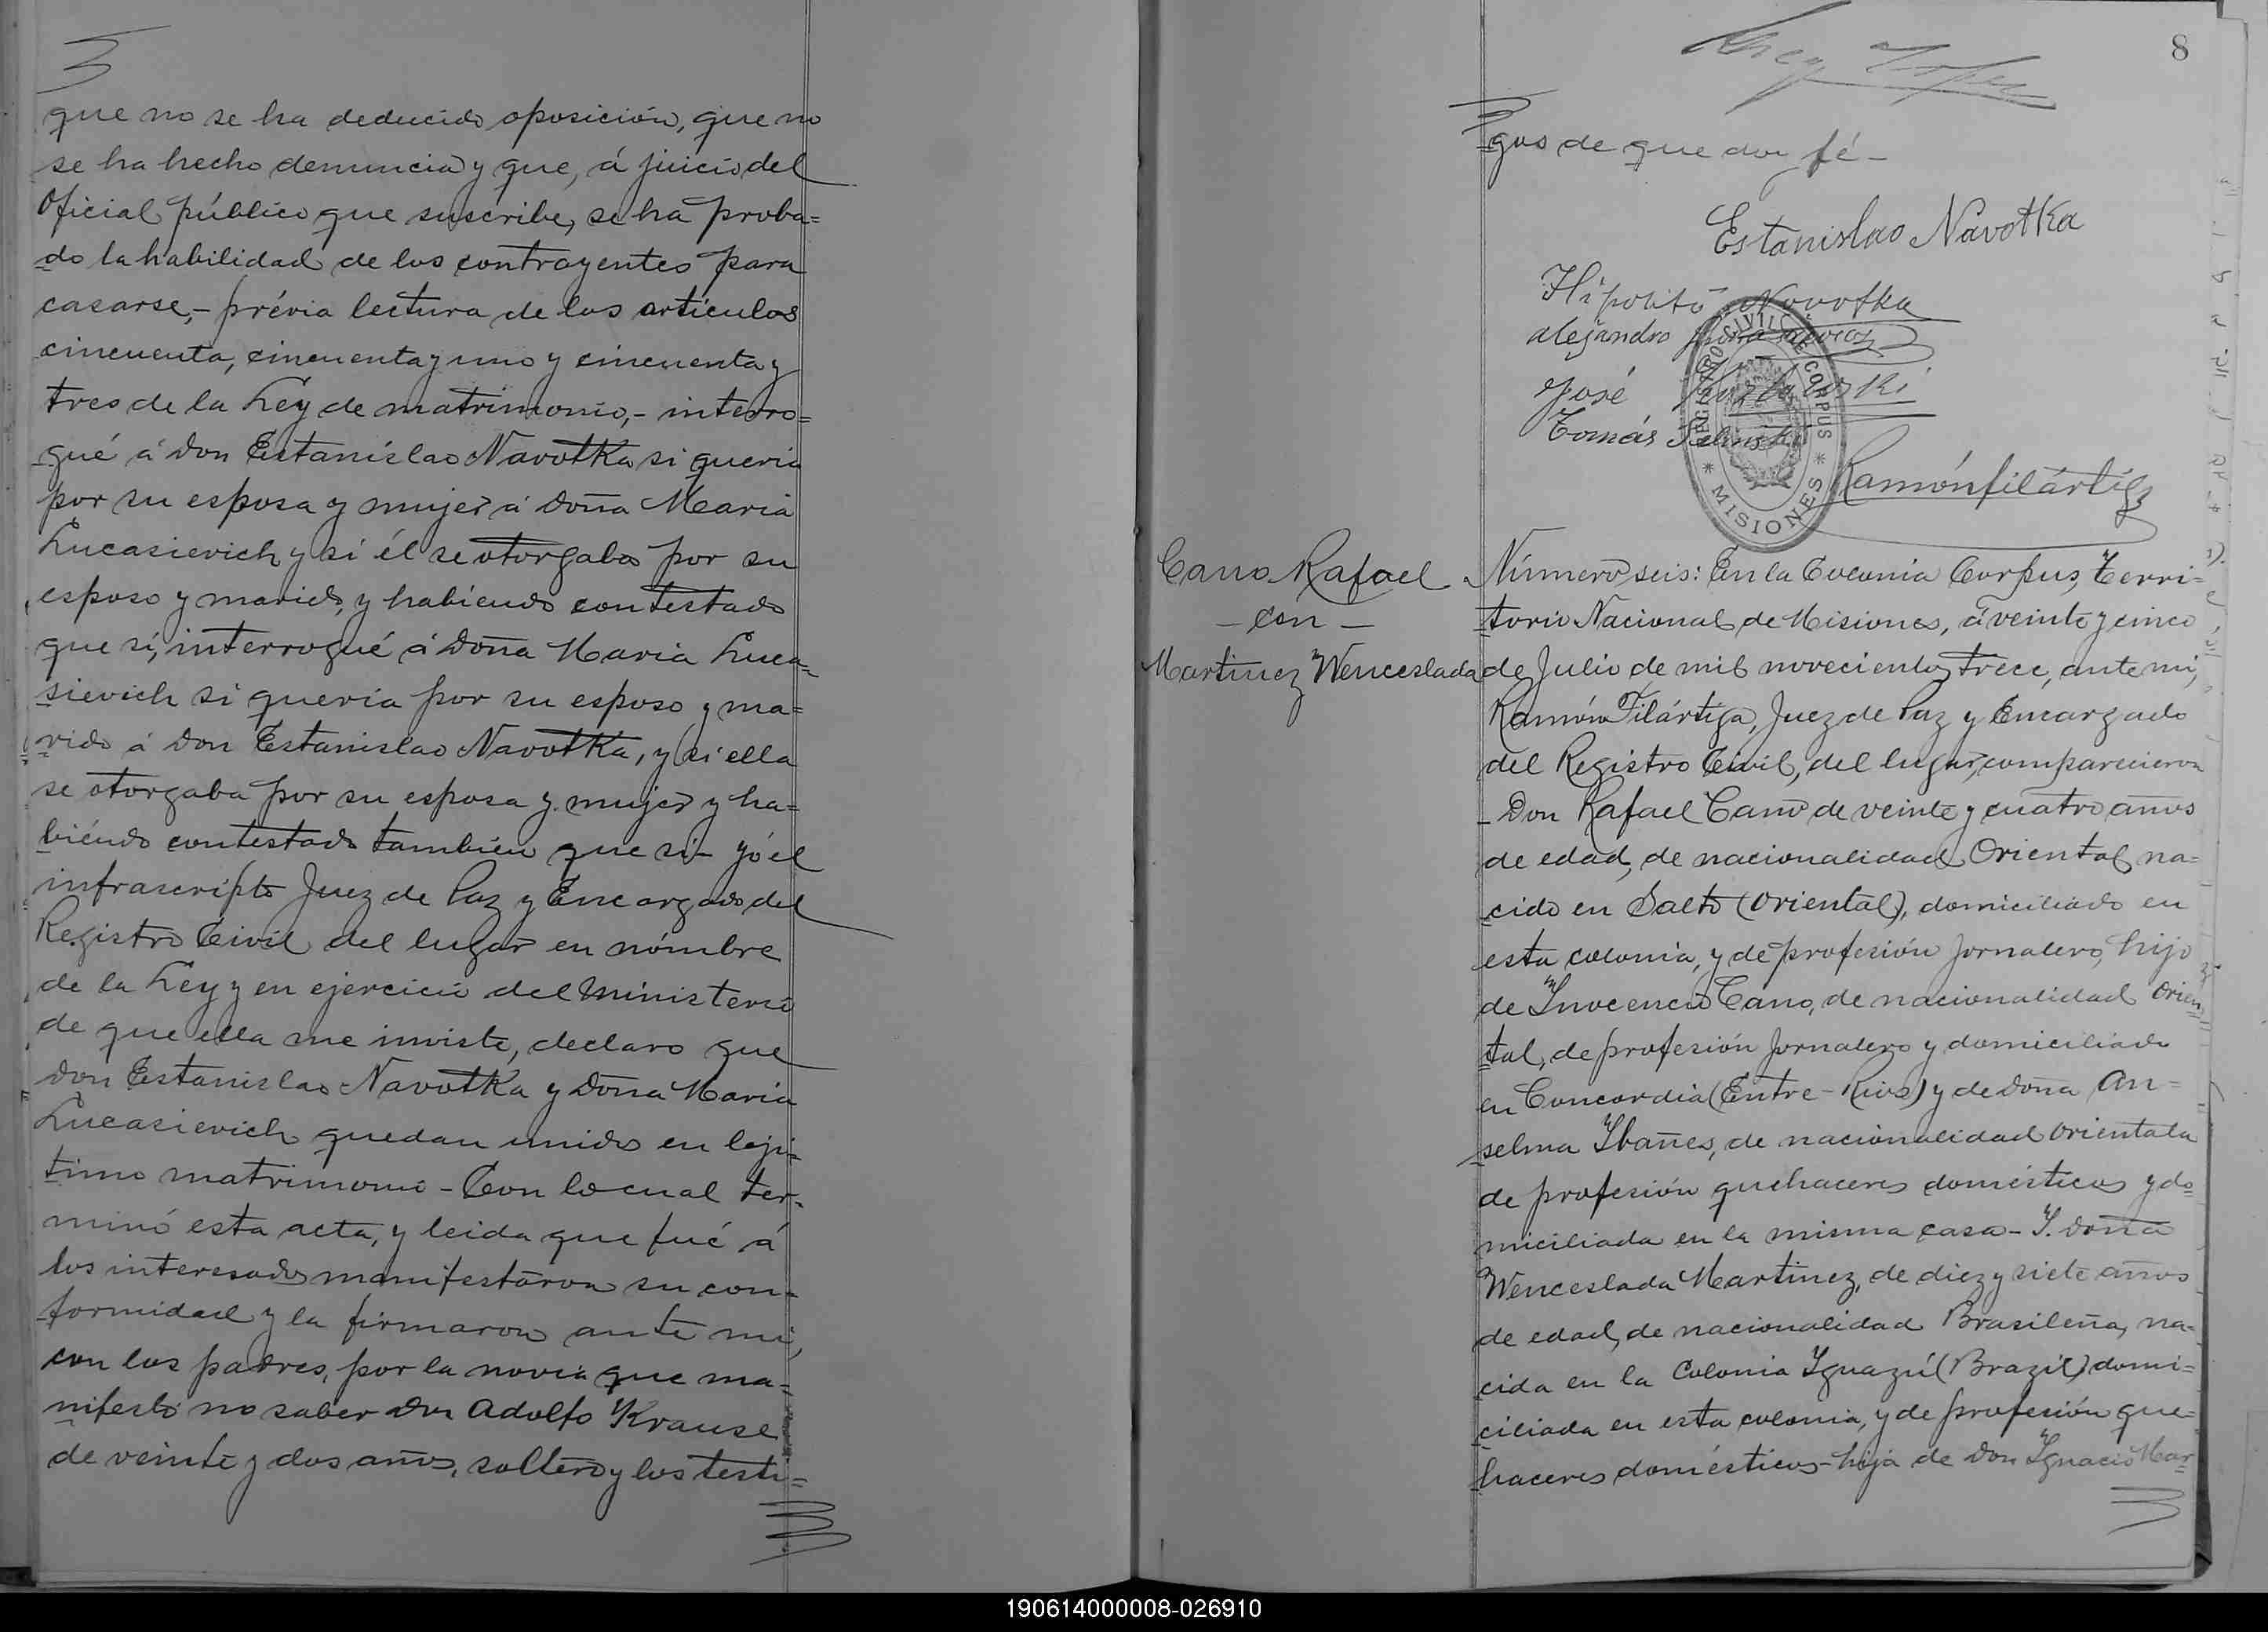 que no se ha deducido oposición, que no
se ha hecho denuncia y que, á juicio del
Oficial público que suscribe, se ha proba=
do la habilidad de los contrayentes para
casarse,- prévia lectura de los artículos
cincuenta, cincuenta y uno y cincuenta y
tres de la Ley de matrimonio,- interro=
gué á Don Estanislao Navotka si queria
por su esposa y mujer á Doña Maria
Lucasievich y si él se otorgaba por su
esposo y marido, y habiendo contestado
que sí, interrogué á Doña Maria Luca=
sievich si quería por su esposo y ma=
rido á Don Estanislao Navotka, y si ella
se otorgaba por su esposa y mujer y ha=
biéndo contestado también que si- yó el
infrascripto Juez de Paz y Encargado del
Registro Civil del lugar en nómbre
de la Ley y en ejercicio del Ministerio
de que ella me inviste, declaro que
Don Estanislao Navotka y Doña Maria
Lucasievich quedan unidos en legí=
timo matrimonio - Con lo cual ter=
minó esta acta, y leida que fué á
los interesados manifestaron su con=
formidad y la firmaron ante mi,
con los padres, por la novia que ma=
nifestó no saber Don Adolfo Krause
de veinte y dos años, soltero y los testi=
8
gos de que doy fé-
Estanislao Navotka
Hipolito Novotka
alejandro
José
Tomás
REGISTRO CIVIL DE CORPUS
* MISIONES *
Ramón Filártiga
Cano Rafael
- con -
Martinez Wenceslada
Número seis: En la Colonia Corpus, Terri=
torio Nacional de Misiones, á veinte y cinco
de Julio de mil novecientos trece, ante mi,
Ramón Filártiga, Juez de Paz y Encargado
del Registro Civil, del lugar, comparecieron
Don Rafael Cano de veinte y cuatro años
de edad, de nacionalidad Oriental na=
cido en Salto (Oriental), domiciliado en
esta colonia, y de profesión jornalero, hijo
de Inocencio Cano, de nacionalidad Orien=
tal, de profesión jornalero y domiciliado
en Concordia (Entre-Rios) y de Doña An=
selma Ibañes, de nacionalidad Orientala
de profesión quehaceres domésticos y do=
miciliada en la misma casa - Y. Doña
Wenceslada Martinez, de diez y siete años
de edad, de nacionalidad Brasileña, na=
cida en la Colonia Yguazú (Brazil) domi=
ciliada en esta colonia, y de profesión que=
haceres domésticos - hija de Don Ignacio Mar=
190614000008-026910